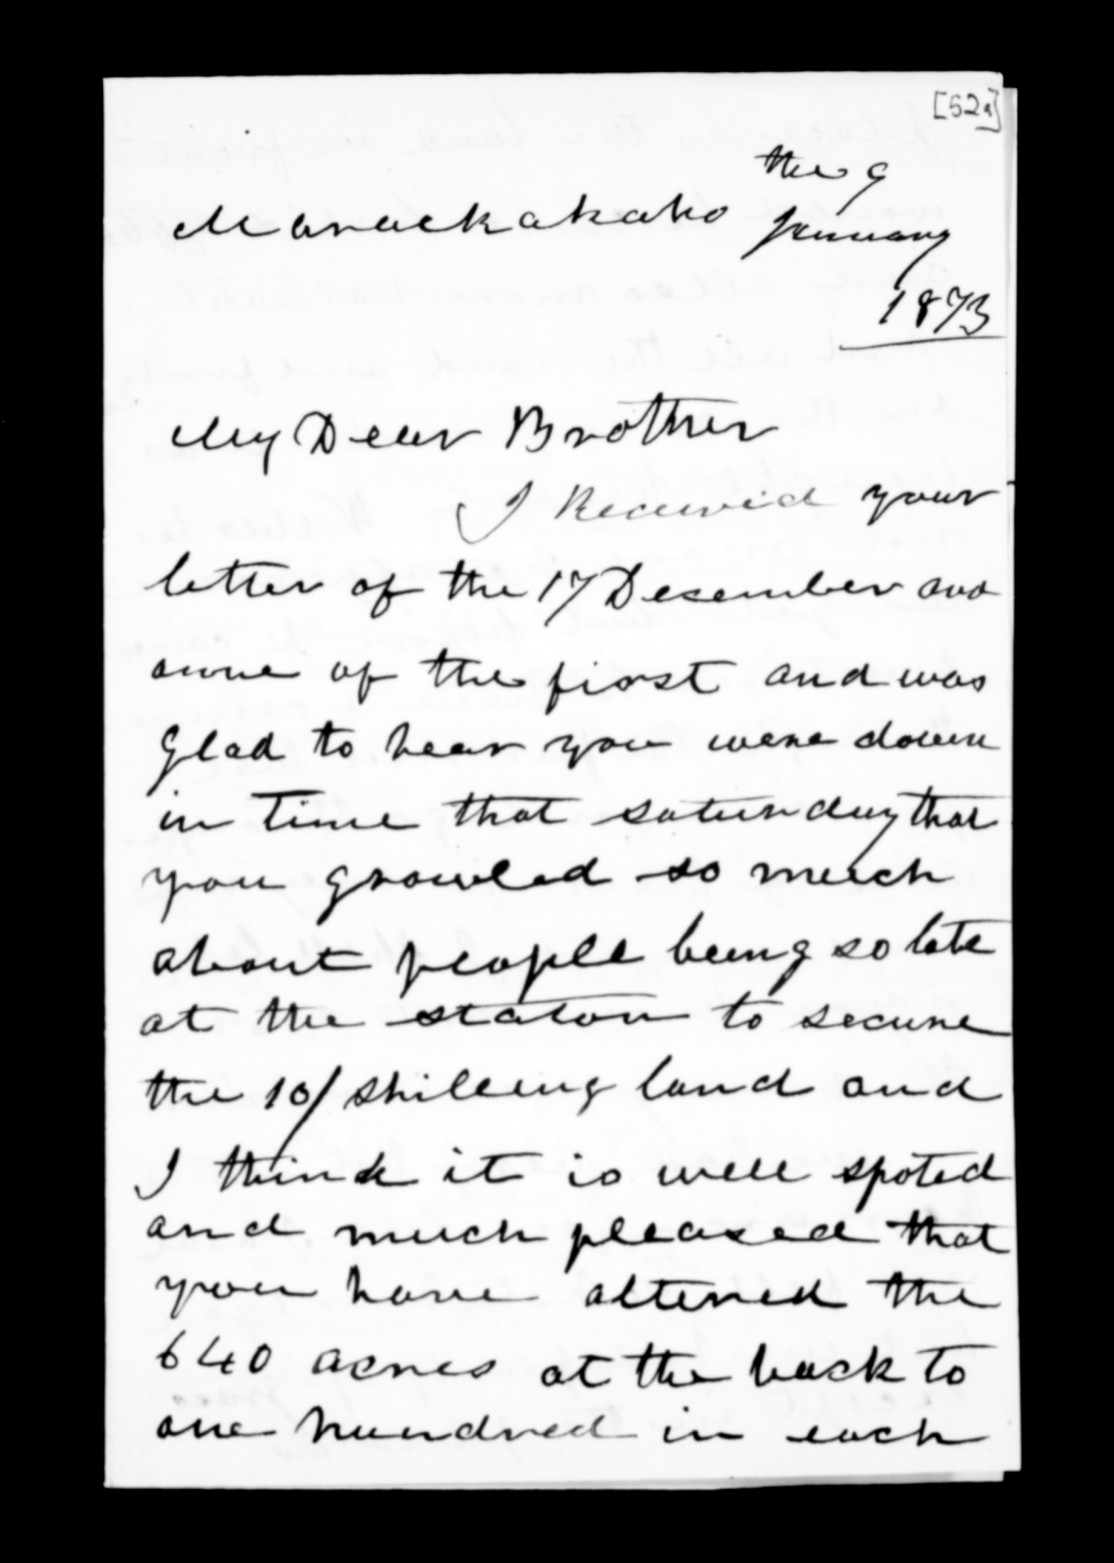 [52a]
the 9
Marackakaho January
1873
My Dear Brother
I Received your
letter of the 17 Desember and
one of the first and was
glad to hear you were down
in time that saturday that
you growled so much
about people being so late
at the station to secure
the 10/ shilling land and
I think it is well spoted
and much pleased that
you have altered the
640 acres at the back to
one hundred in each